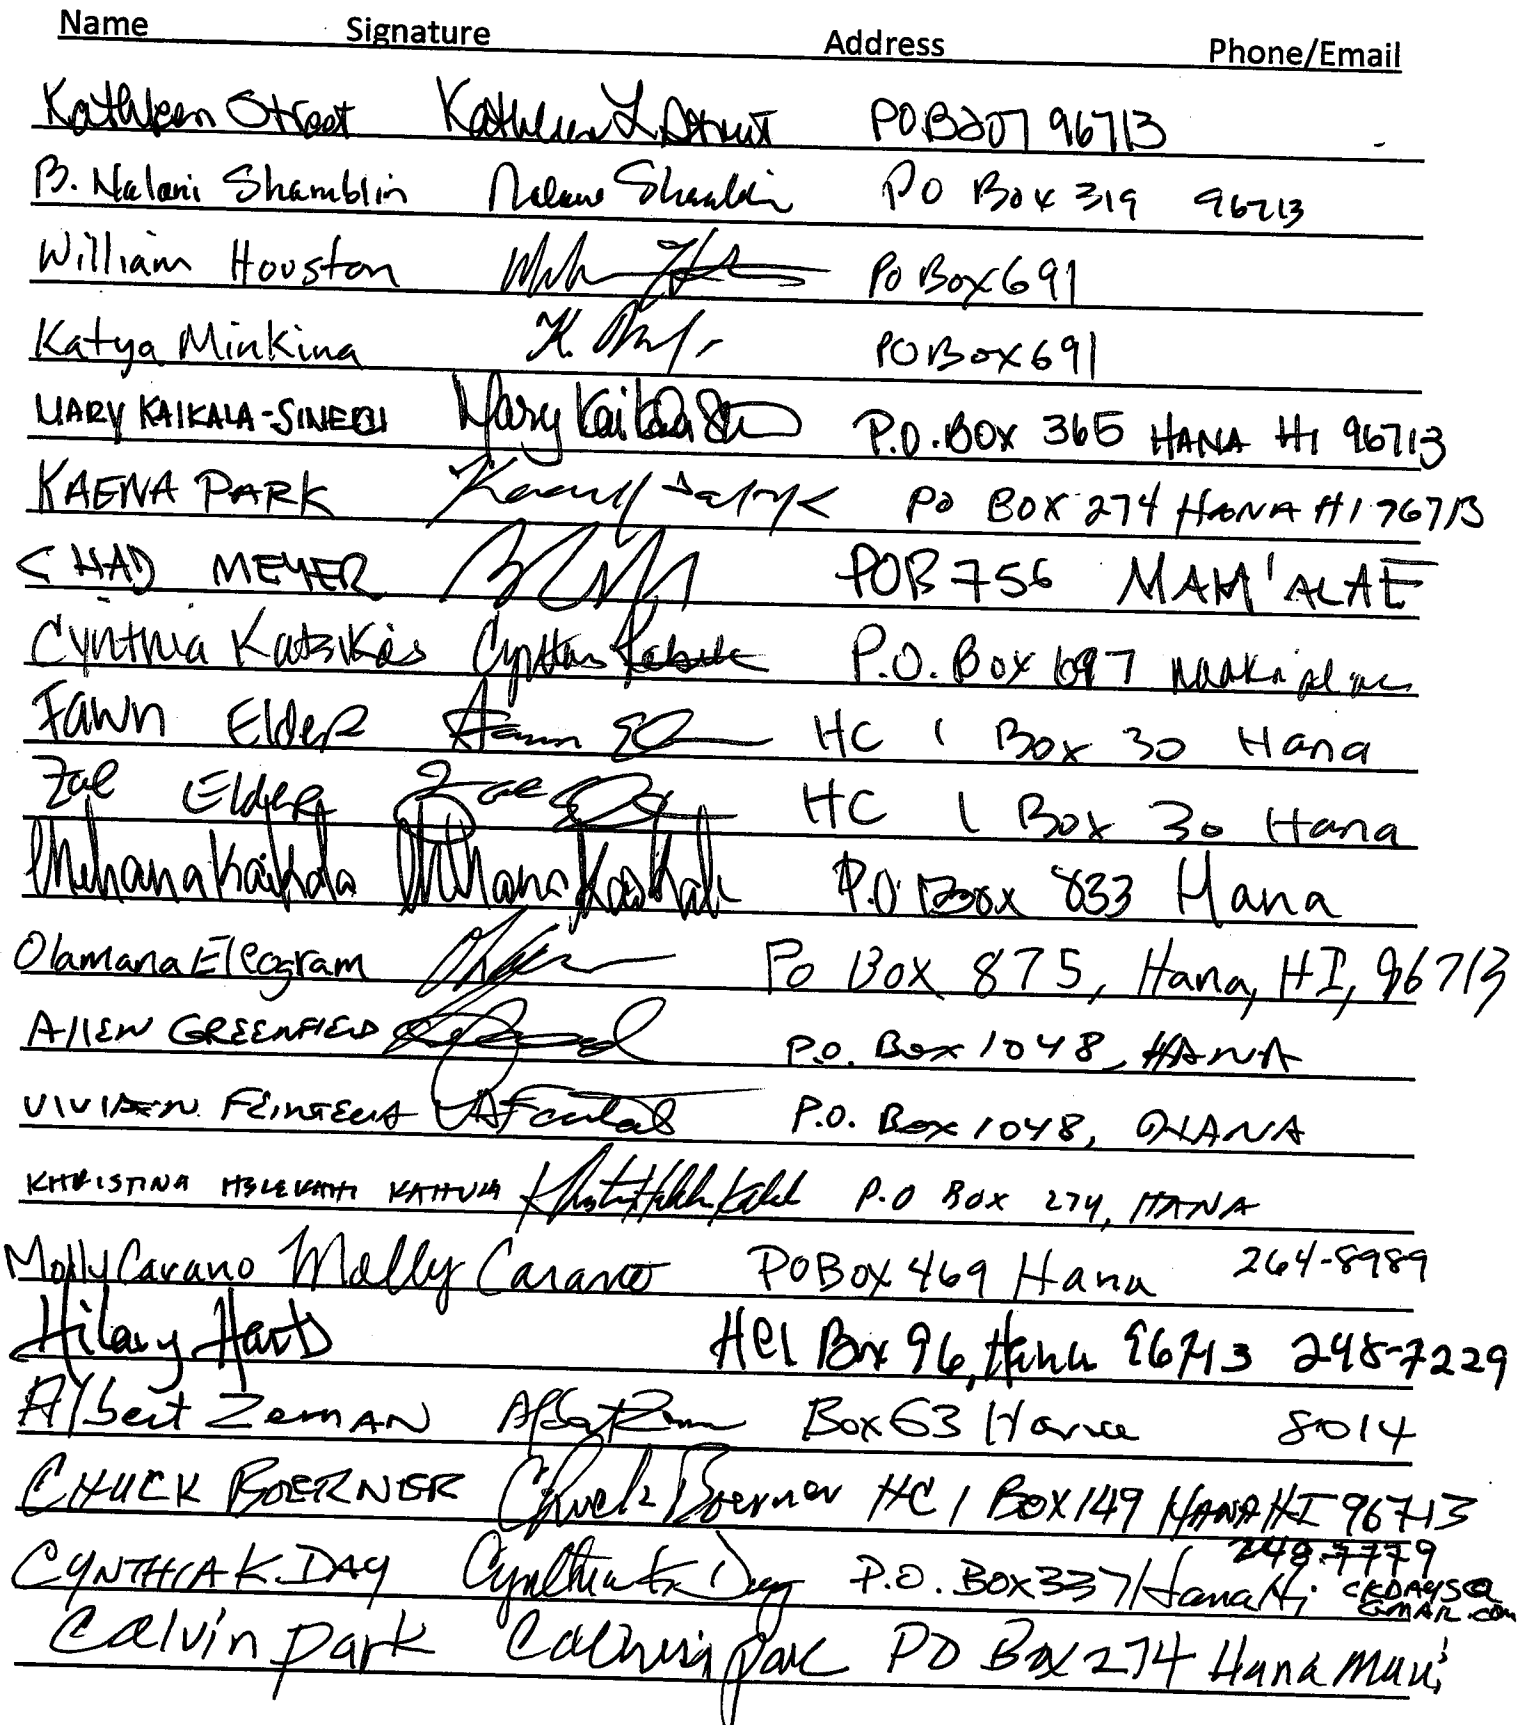 Name Signature Address Phone/Email
Kathleen Street Kathleen L Street POB 207 96713
B. Nalani Shamblin Nalani Shamblin PO Box 319 96713
William Houston PO Box 691
Katya Minkina K. PO Box 691
MARY KAIKALA- Mary Kaikala P.O. BOX 365 HANA HI 96713
KAENA PARK PO BOX 274 HANA HI 96713
CHAD MEYER POB 756
Cynthia Katsikas Cynthia P.O. Box
Fawn Elder Fawn HC 1 Box 30 Hana
Zae Elder Zae HC 1 Box 30 Hana
Mehana Kaikala Mehana Kaikala P.O Boox 833 Hana
Olamana Eleogram Po Box 875, Hana, HI, 96713
Allen GREENFIELD P.O. Box 1048, HANA
VIVIAEN P.O. Box 1048, HANA
KHRISTINA P.O BOX 274, HANA
Molly Carano Molly Carano PO Box 469 Hana 264-8989
Hilary Harts HC1 Box 96, Hana 96713 248-7229
Albert ZEMAN Albert Box 63 Hana 8014
CHUCK BOERNER Chuck Boerner HC 1 BOX 149 HANA HI 96713
248.7779
CYNTHIA K. DAY Cynthia K Day P.O. Box 337 Hana Hi CKDAYS@
GMAIL.com
Calvin park Calvin park PO Box 274 Hana Maui